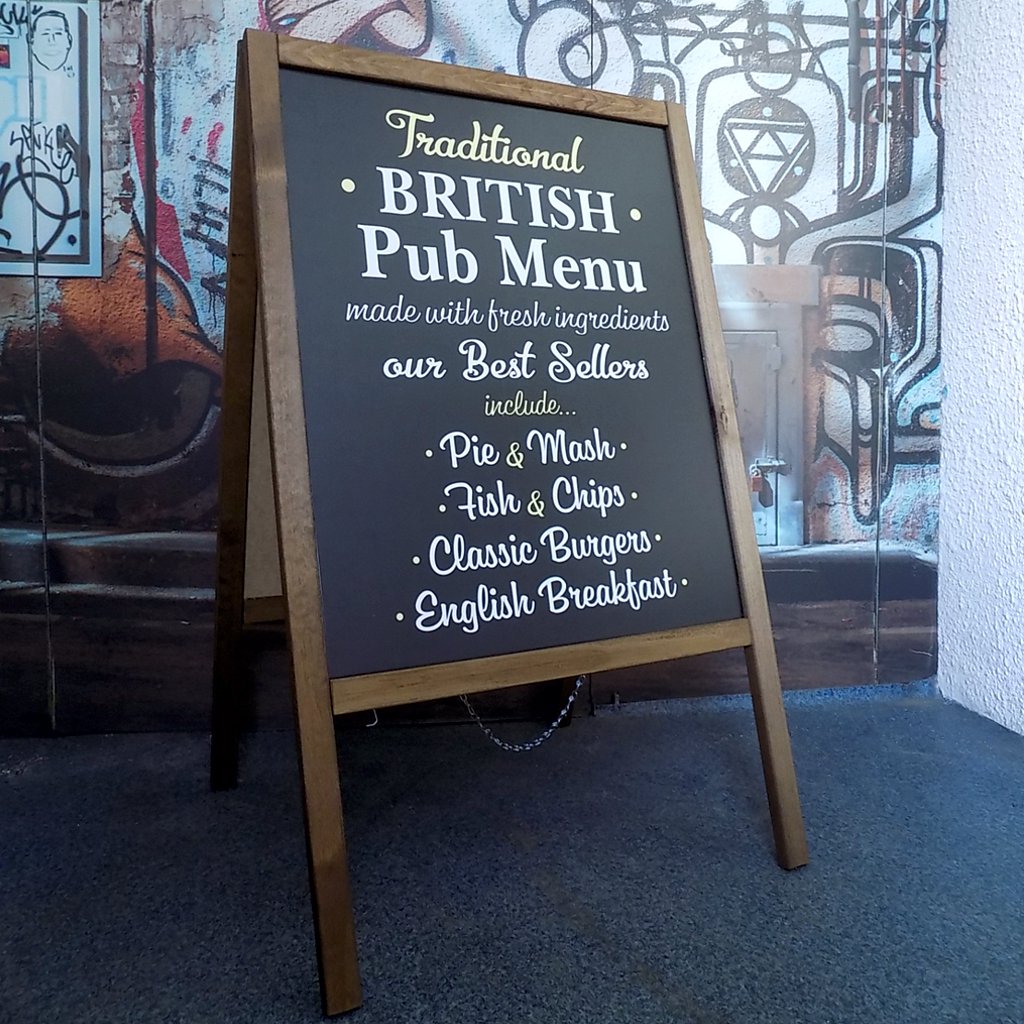 Traditional
• BRITISH •
Pub Menu
made with fresh ingredients
our Best Sellers
include...
• Pie & Mash •
• Fish & Chips •
• Classic Burgers •
• English Breakfast •